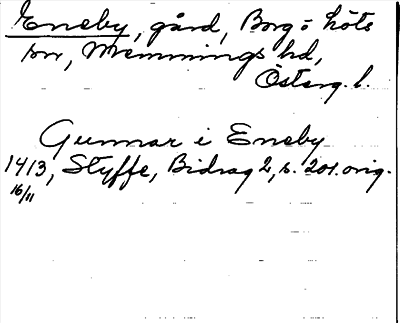 Eneby, gård, Borg o Löts
sn, Memmings hd,
Österg. l.
Gunnar i Eneby
1413, Styffe, Bidrag 2, s. 201. orig.
16/11